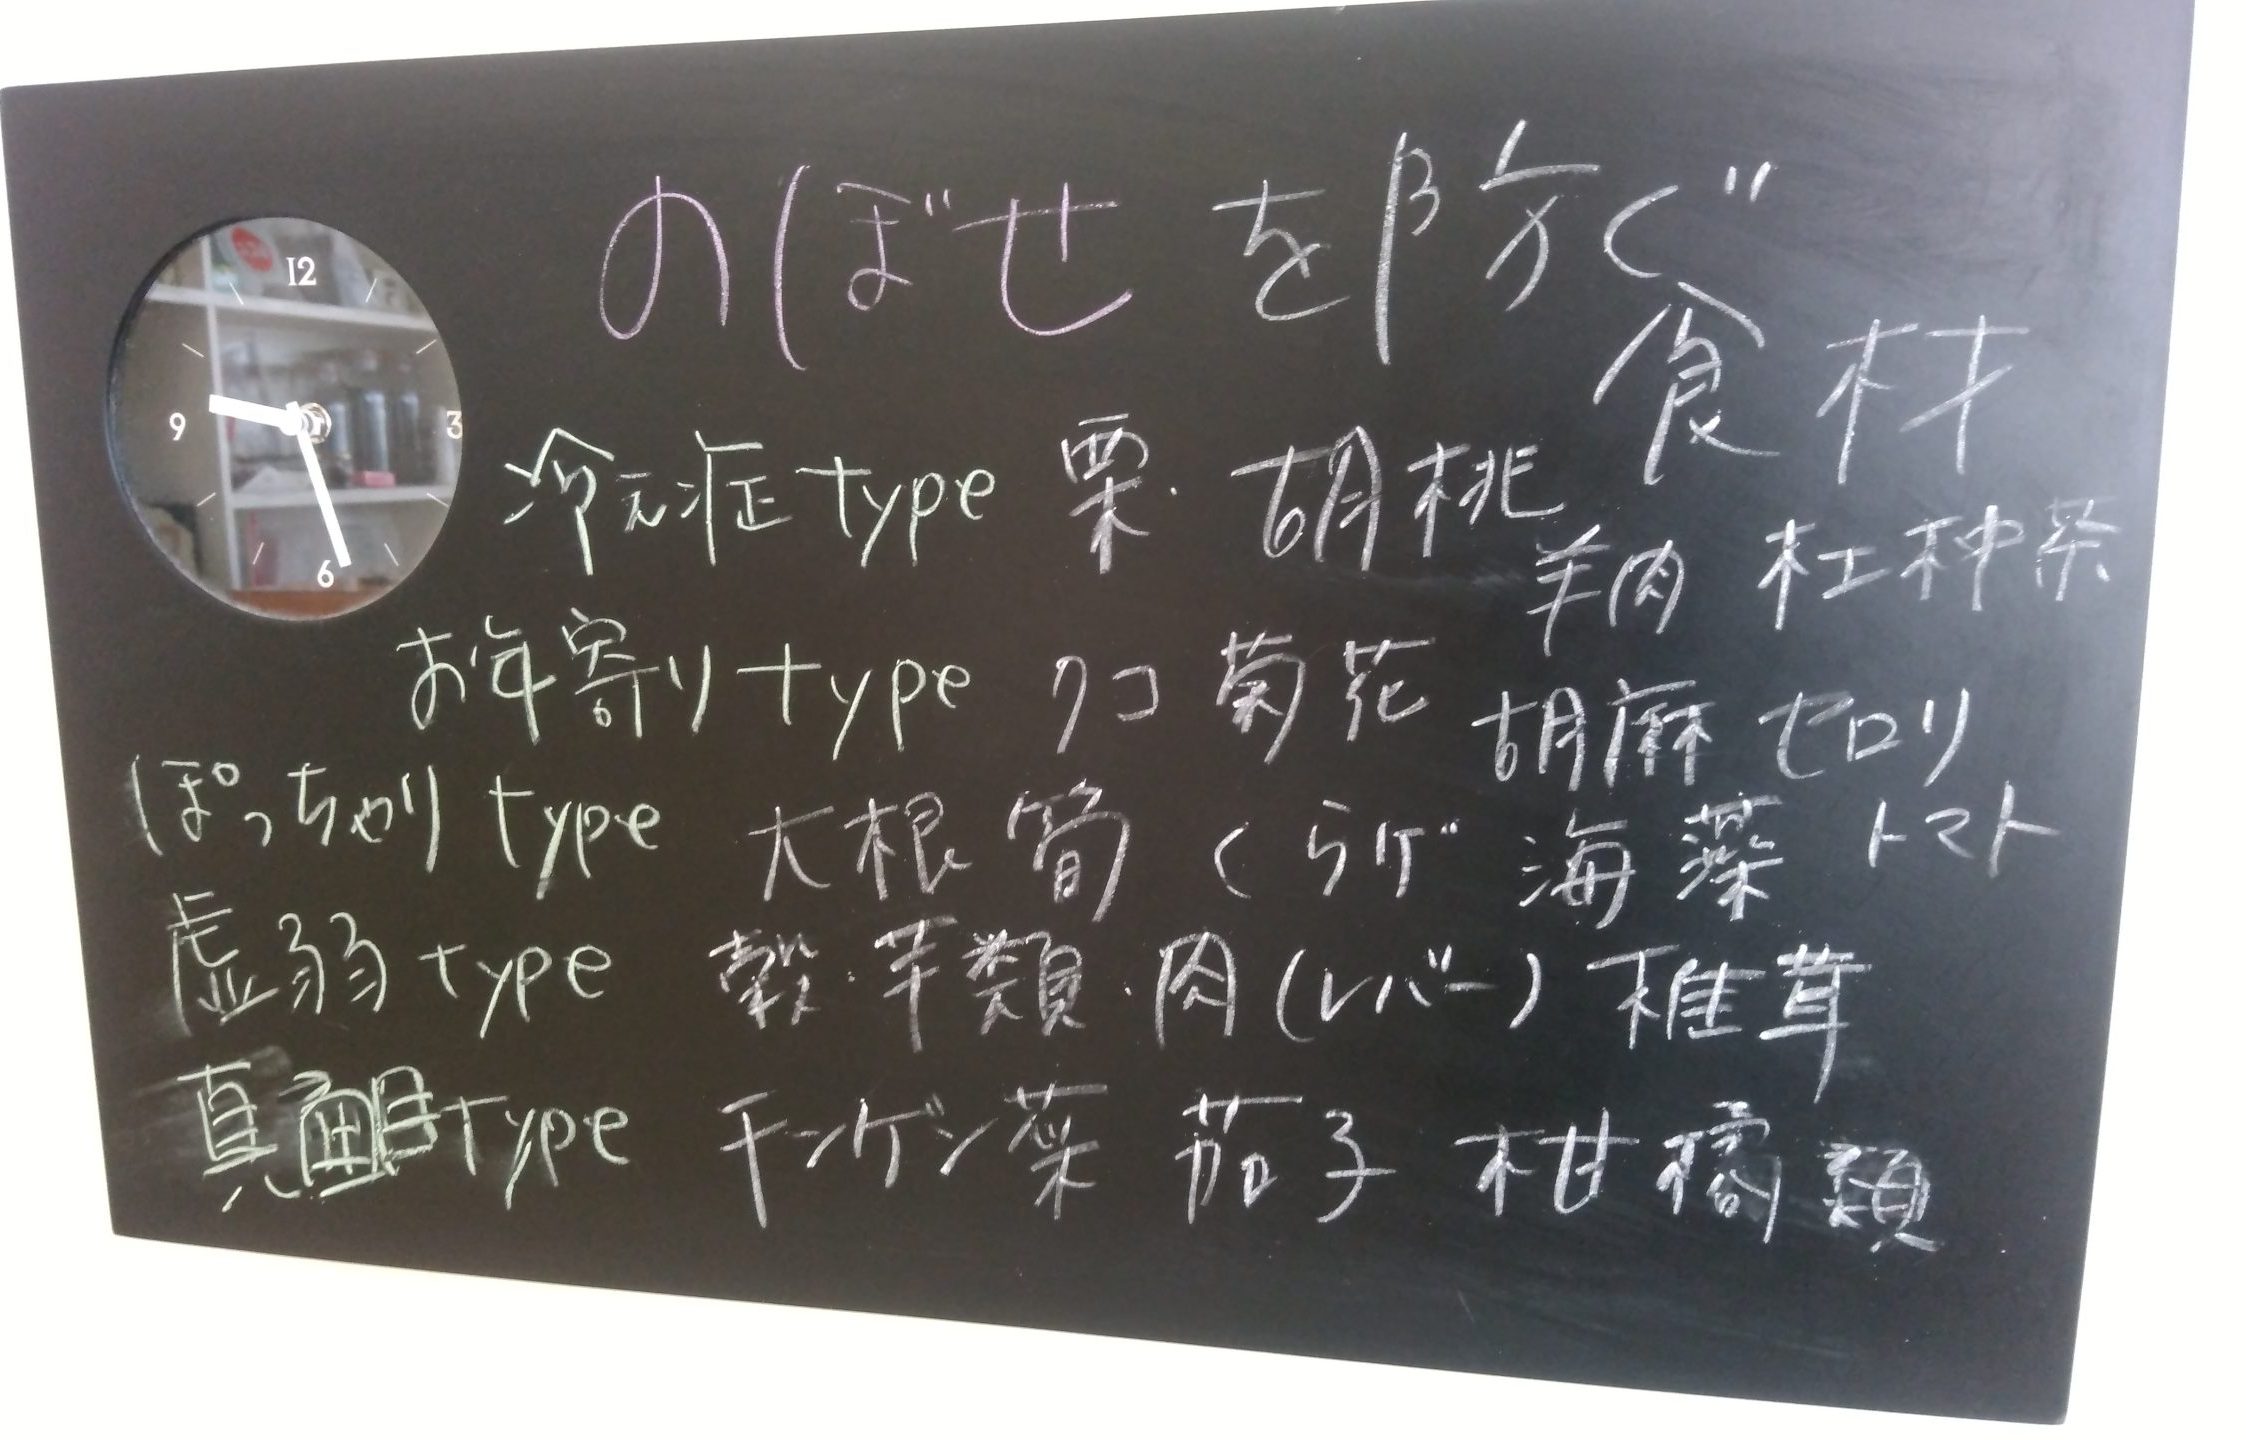 のぼせを防ぐ
食材
12
3
6
9
冷え症type 栗・胡桃
羊肉 杜仲茶
お年寄りtype クコ 菊花
胡麻 セロリ
トマト
ぽっちゃりtype 大根 筍 くらげ 海藻
虚弱type 穀・芋類・肉(レバー) 椎茸
真面目type チンゲン菜 茄子 柑橘類